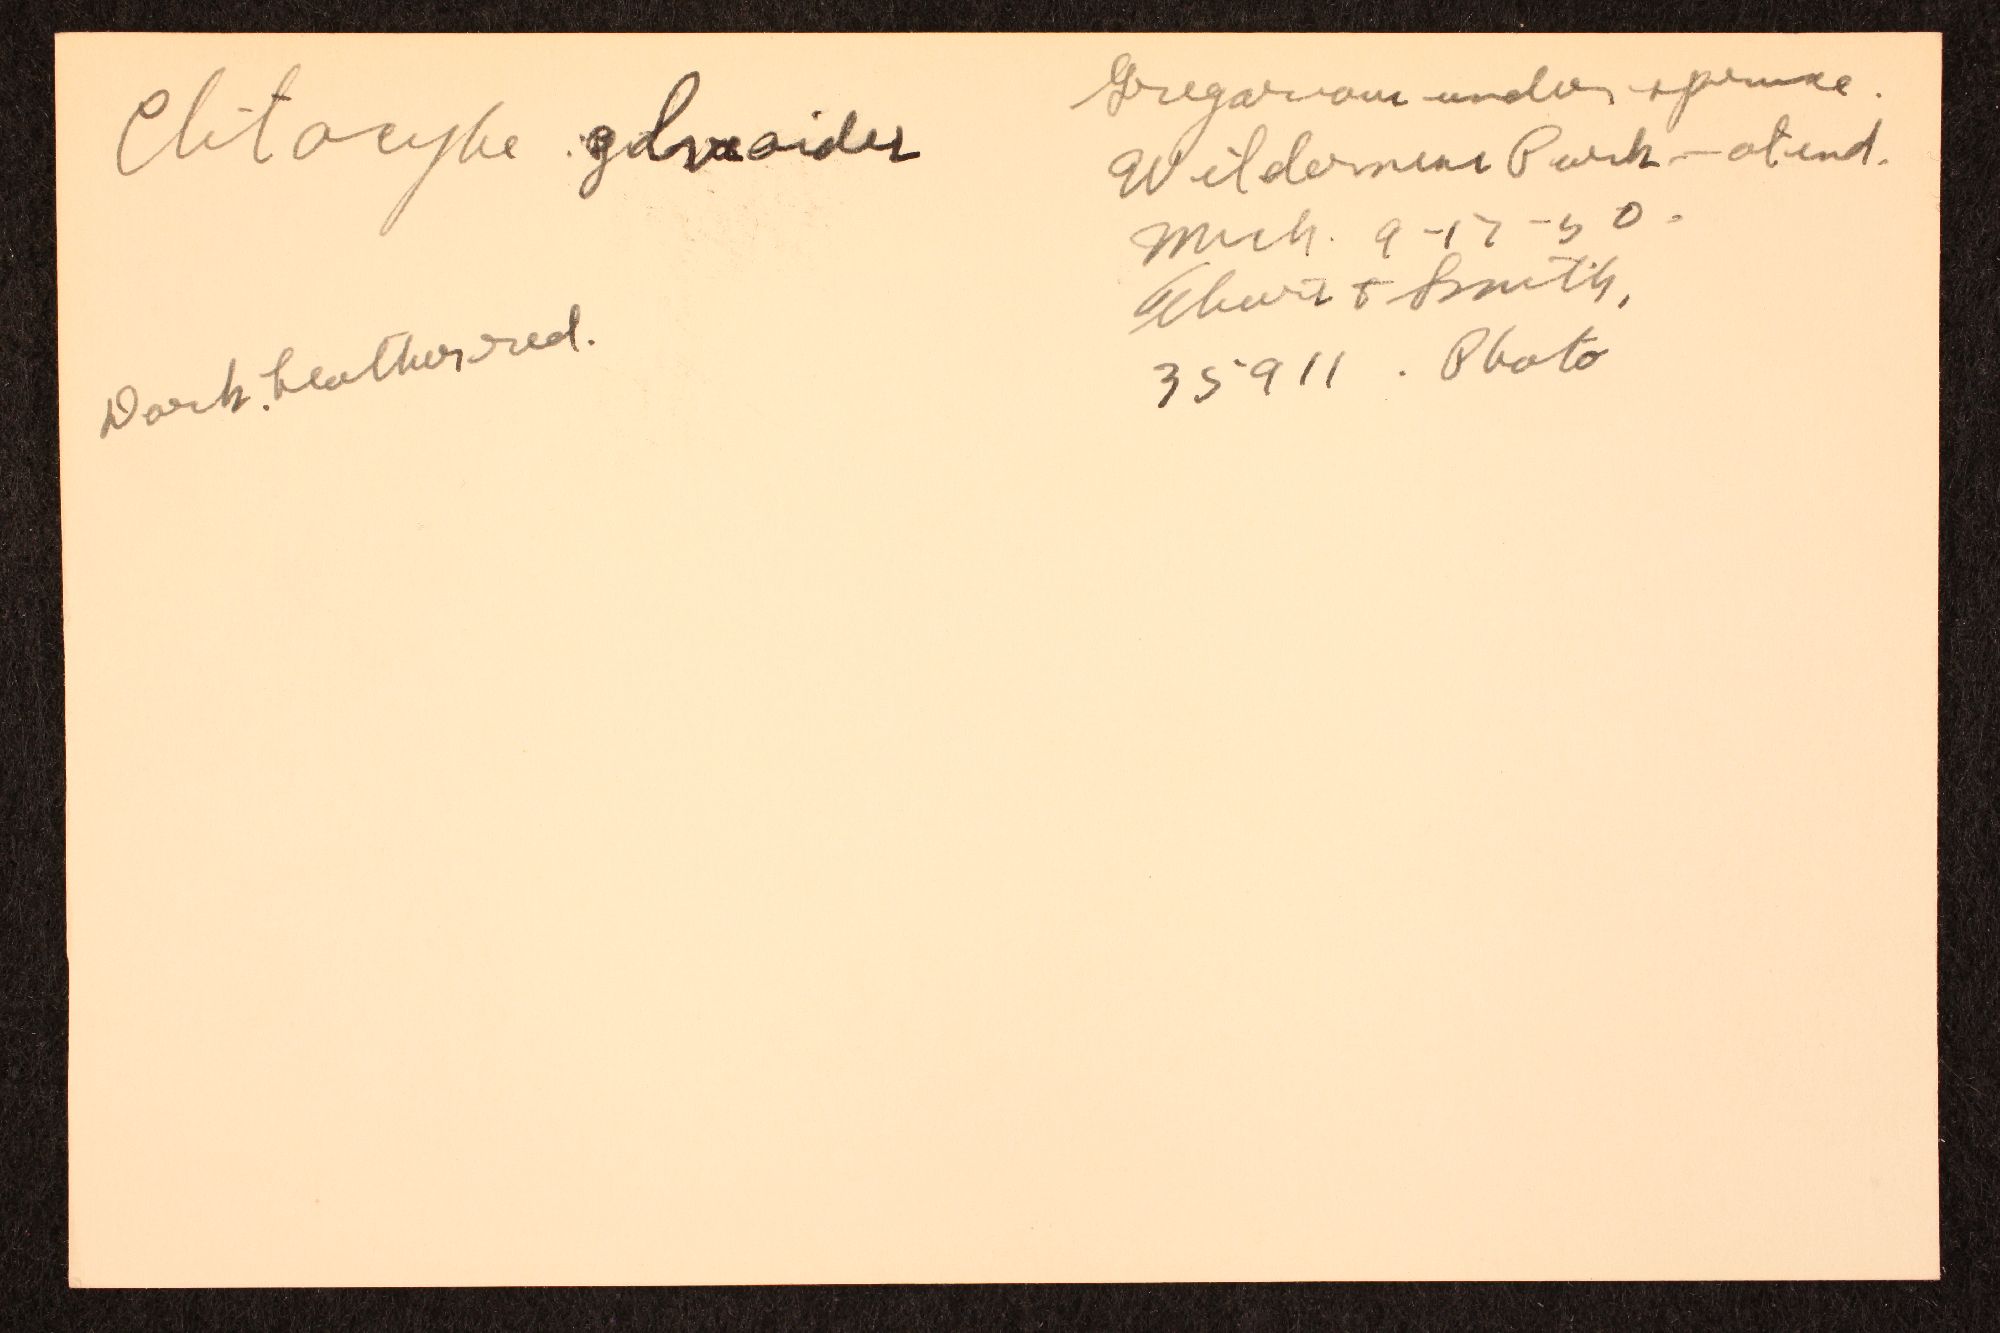 Clitocybe gilvaoides
Gregarious under spruce.
Wilderness Park - at end.
Mich. 9-17-50.
& Smith,
35911. Photo
Dark, leather, red.